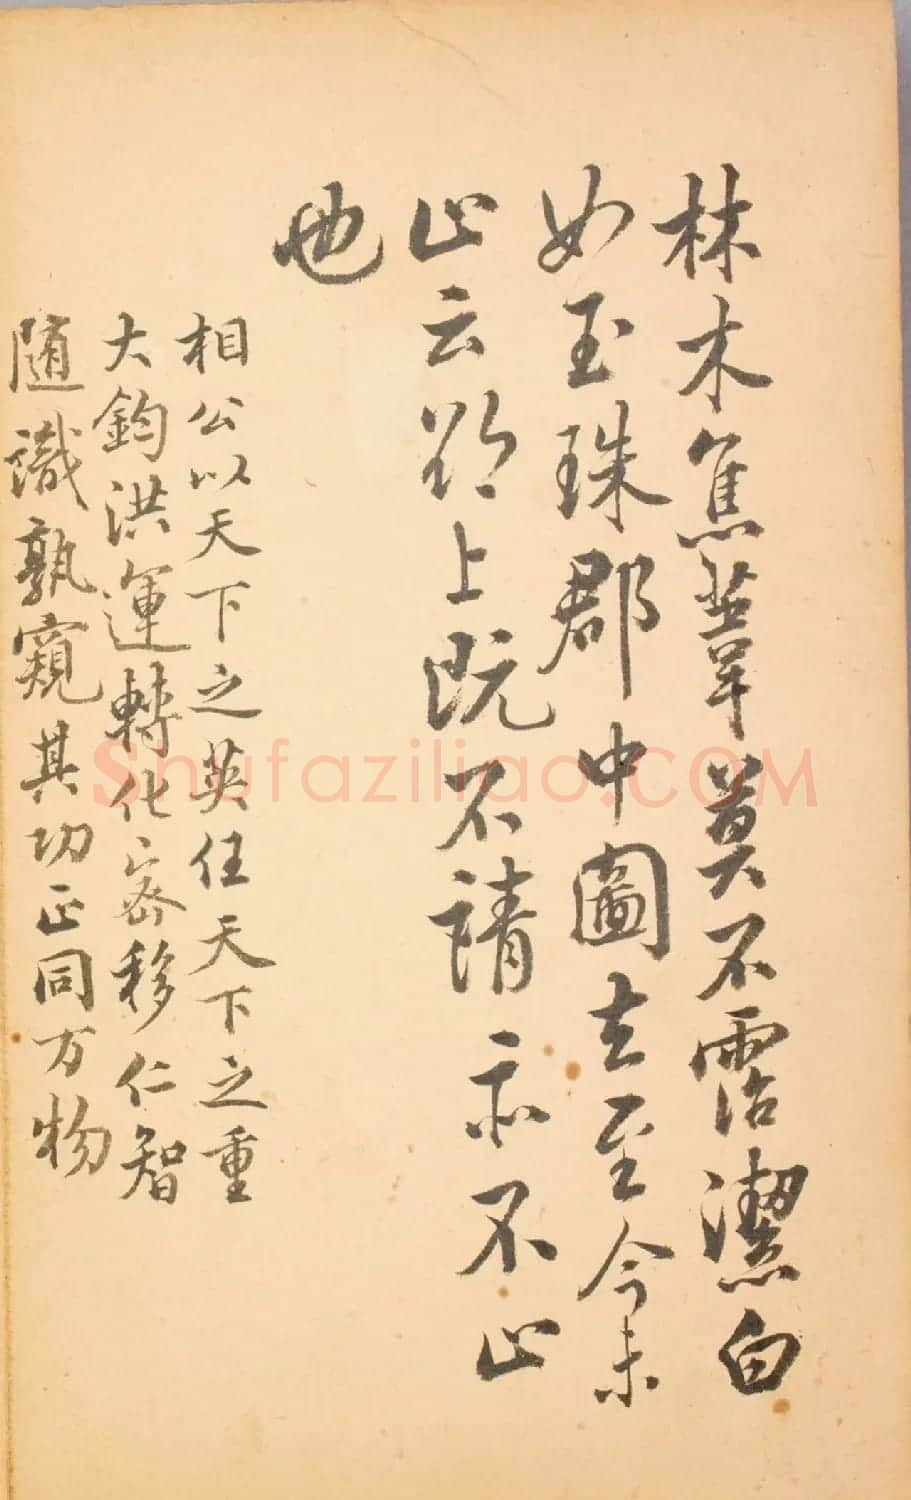 林木焦葦莫不霑潔白
如玉珠郡中圖去至今未
止云上既不請亦不止
也
相公以天下之英任天下之重
大鈞洪運轉化密移仁智
随識孰窺其功正同万物
Shufaziliao.COM